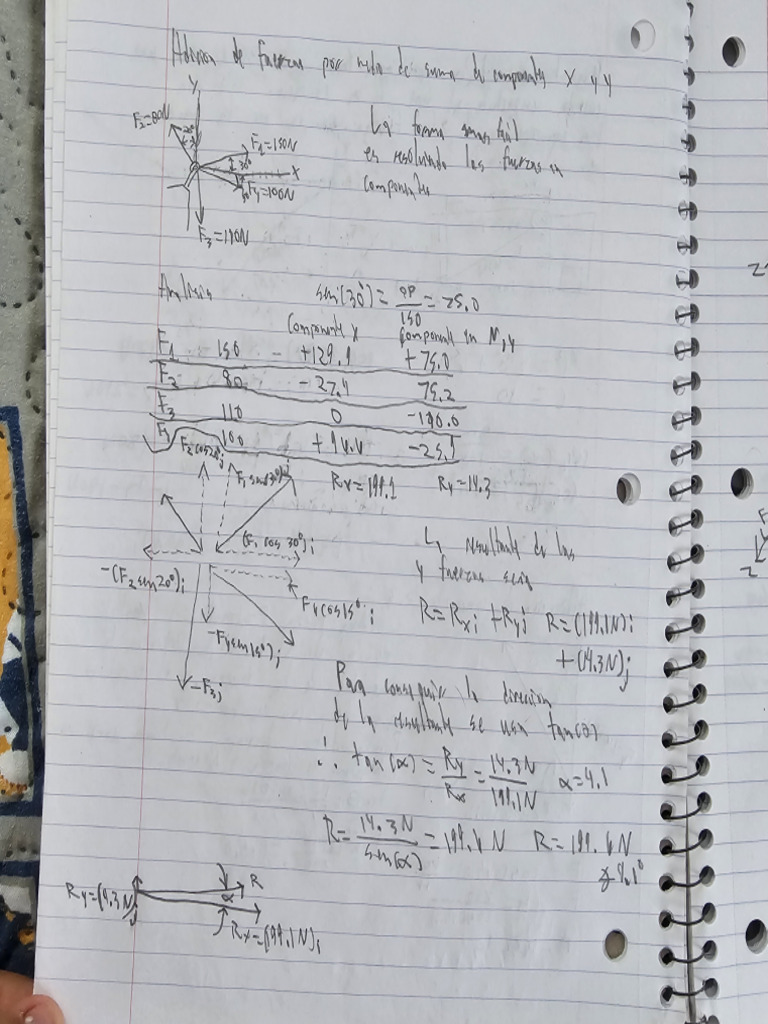 Adicion de fuerzas por medio de suma de componentes X y Y
Y
F2=80N
20°
F1=150N
30°
X
F4=100N
F3=110N
La forma mas facil
es resolviendo las fuerzas en
componentes
Analisis
sen(30°)=OP/150=75.0
Componente X componente en N,y
F1 150 +129.9 +75.0
F2 80 -27.4 75.2
F3 110 0 -110.0
F4 100 +96.6 -25.9
Rx=199.1 Ry=14.3
F2 cos20°j
F1 sen(30°)j
(F1 cos 30°)i
-(F2 sen20°)i
F4 cos15°i
-F4 sen15°)j
-F3j
La resultante de las
4 fuerzas seria
R=Rxi+Ryj R=(199.1N)i
+(14.3N)j
Para conseguir la direccion
de la resultante se usa tan(α)
∴ tan(α)=Ry/Rx=14.3N/199.1N α=4.1
R=14.3N/sen(α)=199.6N R=199.6N
∡4.1°
Ry=(14.3N)j
R
α
Rx=(199.1N)i